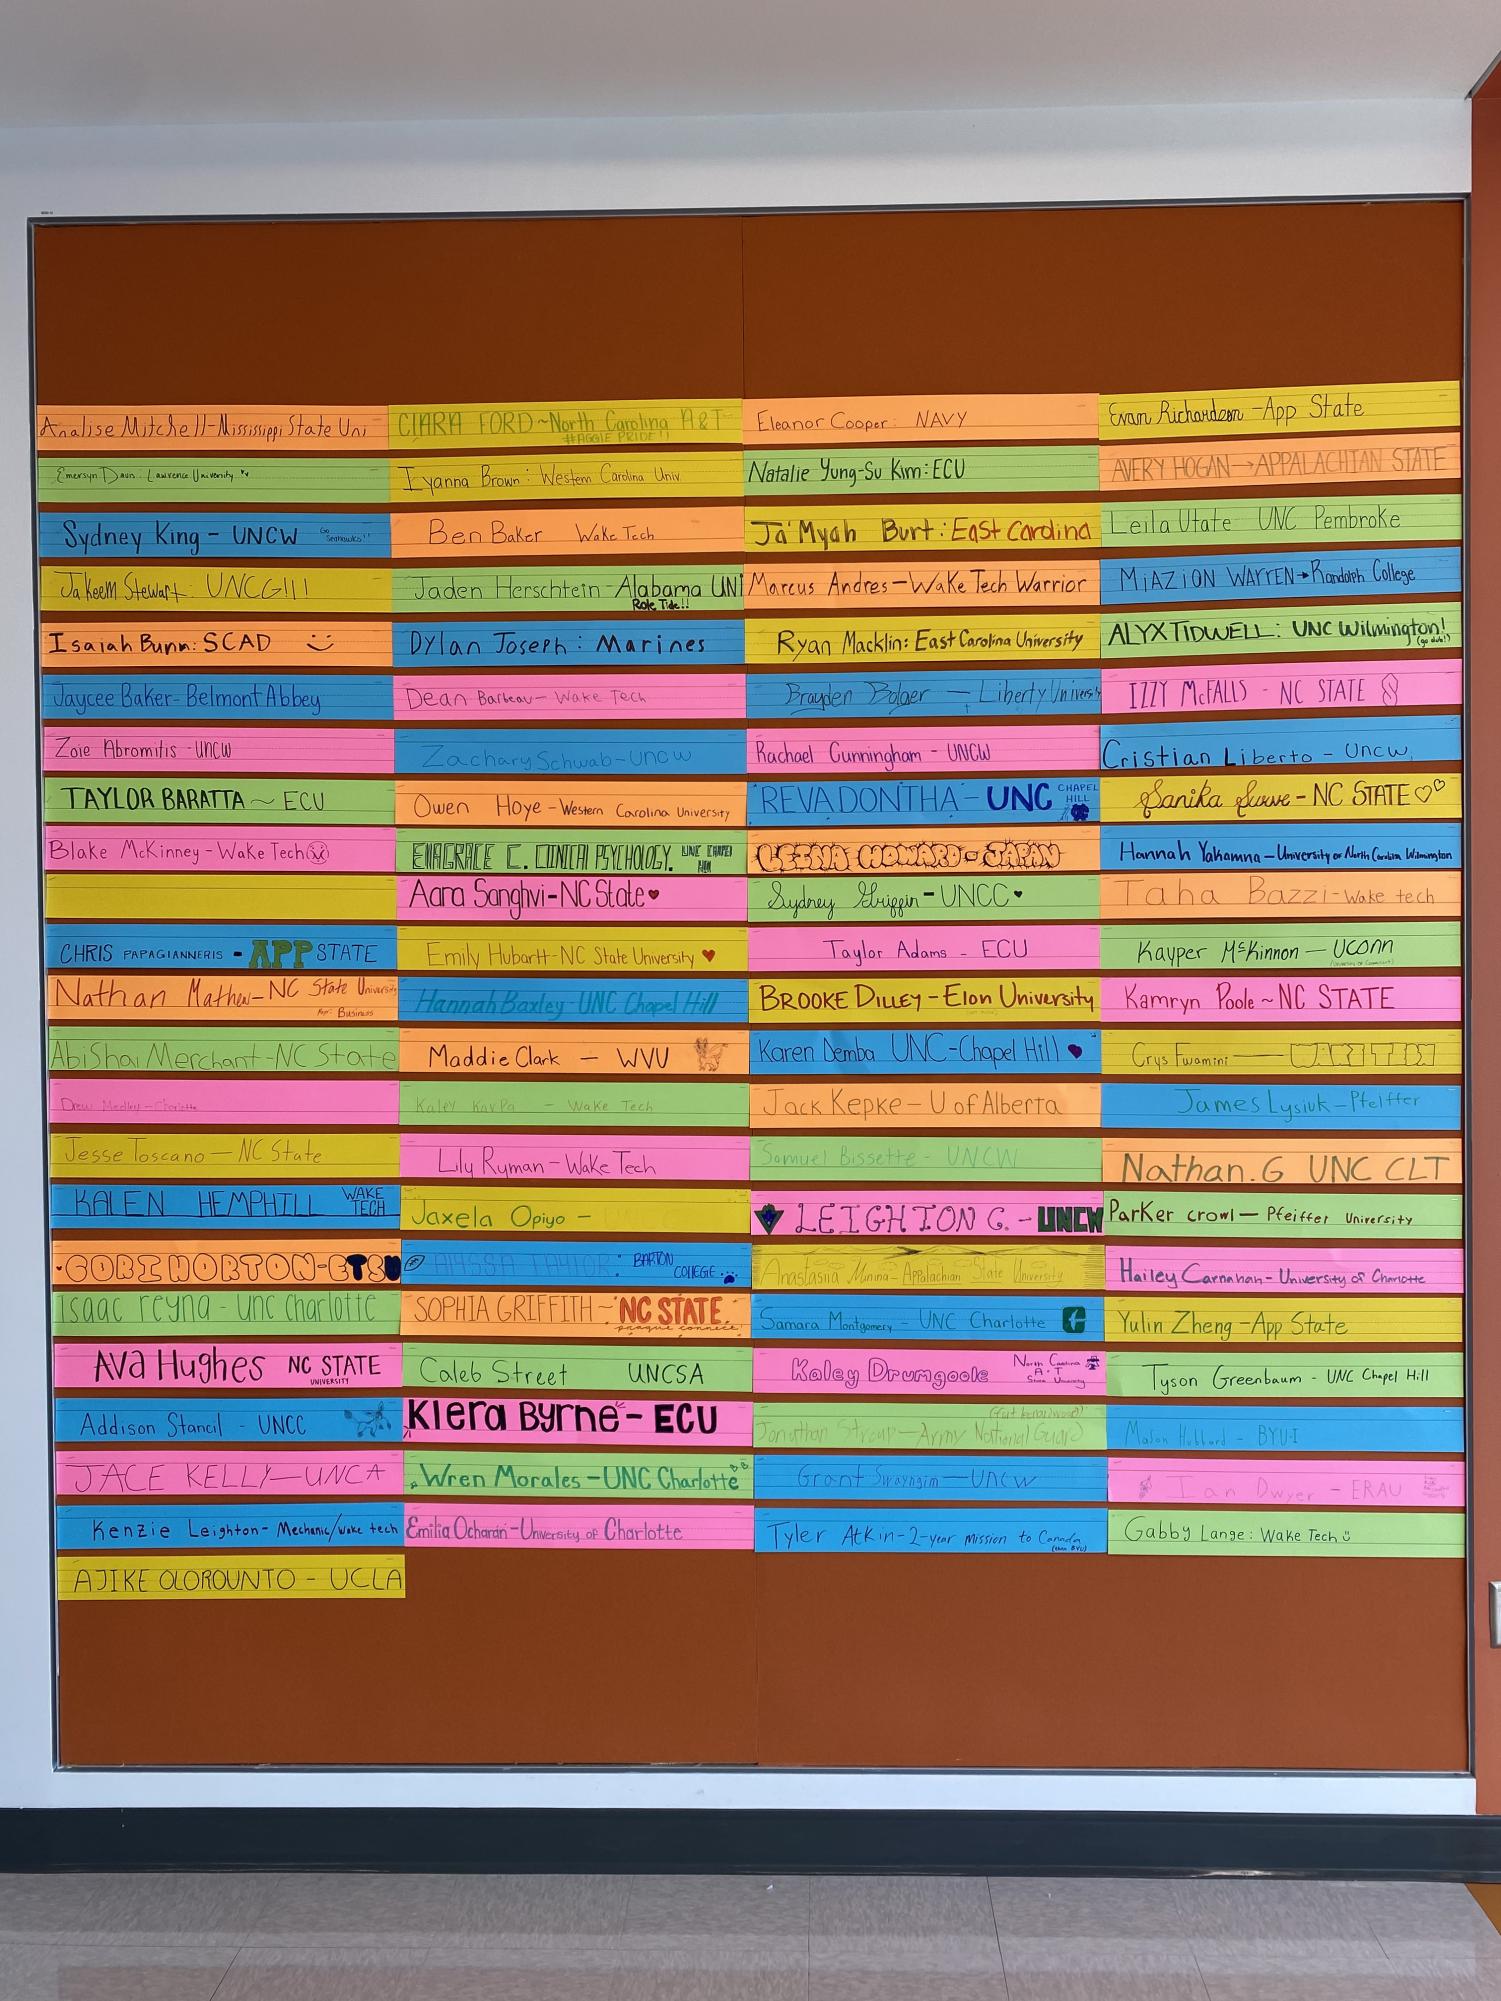 Analise Mitchell-Mississippi State Uni
Emersyn Daun: Lawrence University
Sydney King - UNCW Go Seahawks!!
Jakeem Stewart: UNCG!!!
Isaiah Bunn: SCAD
Jaycee Baker- Belmont Abbey
Zoie Abromitis -UNCW
TAYLOR BARATTA ~ ECU
Blake McKinney - Wake Tech
CHRIS PAPAGIANNERIS - APP STATE
Nathan Mathew- NC State University
Business
Abishai Merchant-NC State
Drew Medley - Charlotte
Jesse Toscano — NC State
KALEN HEMPHILL WAKE TECH
CORI HORTON-ETSU
Isaac reyna - unc charlotte
AVA Hughes NC STATE
UNIVERSITY
Addison Stancil - UNCC
JACE KELLY—UNCA
Kenzie Leighton- Mechanic/Wake tech
AJIKE OLOROUNTO - UCLA
CIARA FORD ~North Carolina A&T
#AGGIE PRIDE!!
Iyanna Brown: Western Carolina Univ.
Ben Baker Wake Tech
Jaden Herschtein - Alabama UNI
Role Tide!!
Dylan Joseph: Marines
Dean Barbeau- Wake Tech
Zachary Schwab-uncw
Owen Hoye - Western Carolina University
EMAGRACE C. CLINICAL PSYCHOLOGY. UNC CHAPEL HILL
Aara Sanghvi-NC State
Emily Hubartt-NC State University
Hannah Baxley-UNC Chapel Hill
Maddie Clark — WVU
Kaley - Wake Tech
Lily Ryman - Wake Tech
Jaxela Opiyo -
ALYSSA TAYLOR: BARTON COLLEGE
SOPHIA GRIFFITH ~ NC STATE.
prague connect!
Caleb Street UNCSA
Kiera Byrne - ECU
Wren Morales - UNC Charlotte
Emilia Ocharán-University of Charlotte
Eleanor Cooper: NAVY
Natalie Yung-Su Kim: ECU
Ja'Myah Burt: East Carolina
Marcus Andres—Wake Tech Warrior
Ryan Macklin: East Carolina University
Brayden Bolger — Liberty University
Rachael Cunningham - UNCW
REVA DONTHA - UNC CHAPEL HILL
LEENA HOWARD - JAPAN
Sydney Griffin - UNCC
Taylor Adams - ECU
BROOKE DILLEY - Elon University
Karen Demba UNC-Chapel Hill
Jack Kepke - U of Alberta
Samuel Bissette - UNCW
LEIGHTON C. - UNCW
Anastasiia Minina - Appalachian State University
Samara Montgomery - UNC Charlotte
Kaley Drumgoole North Carolina A&T State University
Jonathan Stroup—Army National Guard
Grant Swayngim — UNCW
Tyler Atkin-2-year mission to Canada
(then BYU)
Evan Richardson -App State
AVERY HOGAN→APPALACHIAN STATE
Leila Utate UNC Pembroke
MiAZiON WARREN→Randolph College
ALYX TIDWELL: UNC Wilmington!
(go dubs!)
IZZY McFALLS - NC STATE
Cristian Liberto - Uncw.
Sanika Surve - NC STATE
Hannah Yakamna - University of North Carolina Wilmington
Taha Bazzi - Wake tech
Kayper McKinnon — UConn
(University of Connecticut)
Kamryn Poole ~ NC STATE
Crys Fwamini — WAKE TECH
James Lysiuk - Pfeiffer
Nathan.G UNC CLT
Parker crowl — Pfeiffer University
Hailey Carnahan- University of Charlotte
Yulin Zheng -App State
Tyson Greenbaum - UNC Chapel Hill
Mason Hubbard - BYU-I
Ian Dwyer - ERAU
Gabby Lange: Wake Tech